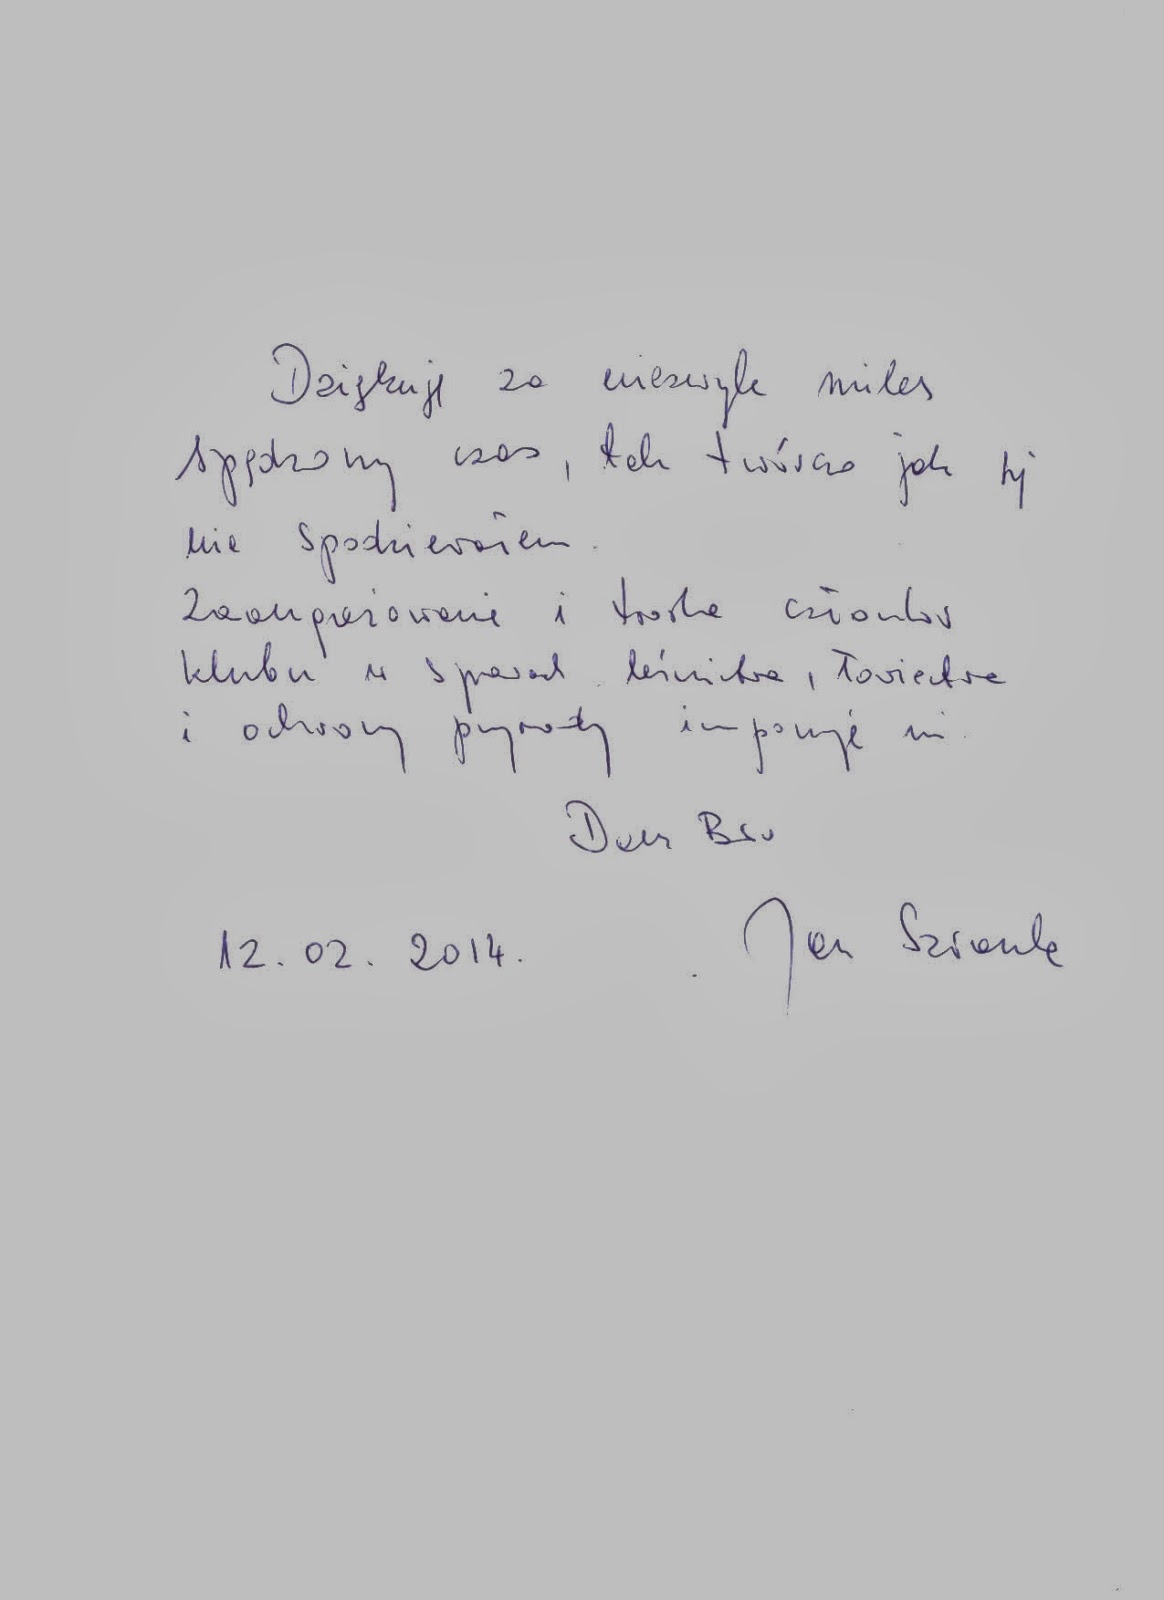 Dziękuję za niezwykle mile
spędzony czas, tak twórczo jak się
nie spodziewałem.
Zaangażowanie i troska członków
klubu w sprawach leśnictwa, łowiectwa
i ochrony przyrody imponuje mi.
Darz Bór
12.02.2014. Jan